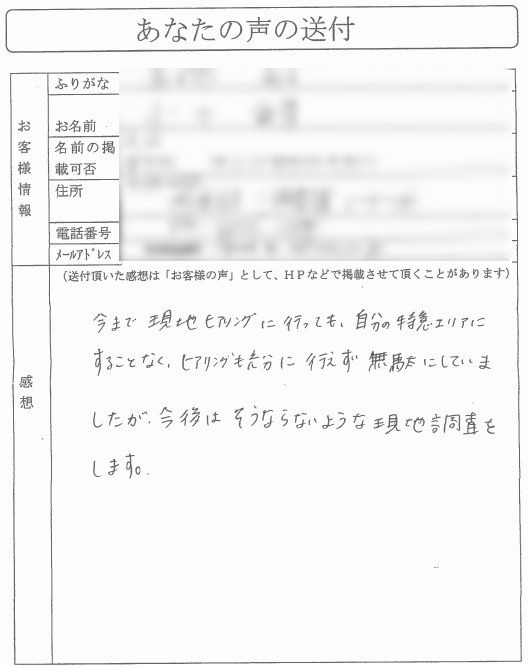 あなたの声の送付
お客様情報
ふりがな
お名前
名前の掲
載可否
住所
電話番号
ﾒｰﾙｱﾄﾞﾚｽ
感想
(送付頂いた感想は「お客様の声」として、HPなどで掲載させて頂くことがあります)
今まで現地ヒアリングに行っても、自分の特急エリアに
することなく、ヒアリングも充分に行えず無駄にしていま
したが、今後はそうならないような現地調査を
します。